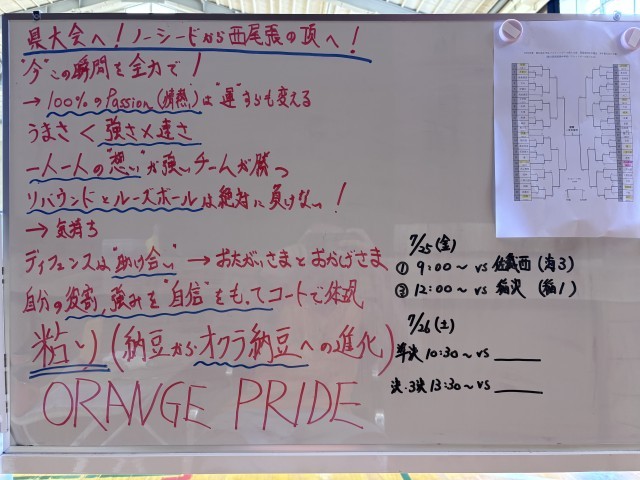 県大会へ！ノーシードから西尾張の頂へ！
"今"この瞬間を全力で！
→100%のPassion(情熱)は"運"すらも変える
うまさ < 強さ×速さ
一人一人の"想い"が強いチームが勝つ
リバウンドとルーズボールは絶対に負けない！
→気持ち
ディフェンスは"助け合い"→おたがいさまとおかげさま
自分の役割、強みを"自信"をもってコートで体現
粘り(納豆からオクラ納豆への進化)
ORANGE PRIDE
7/25(金)
① 9:00～ vs 佐織西(海3)
③ 12:00～ vs 稲沢 (稲1)
7/26(土)
準決 10:30～ vs
決・3決 13:30～ vs